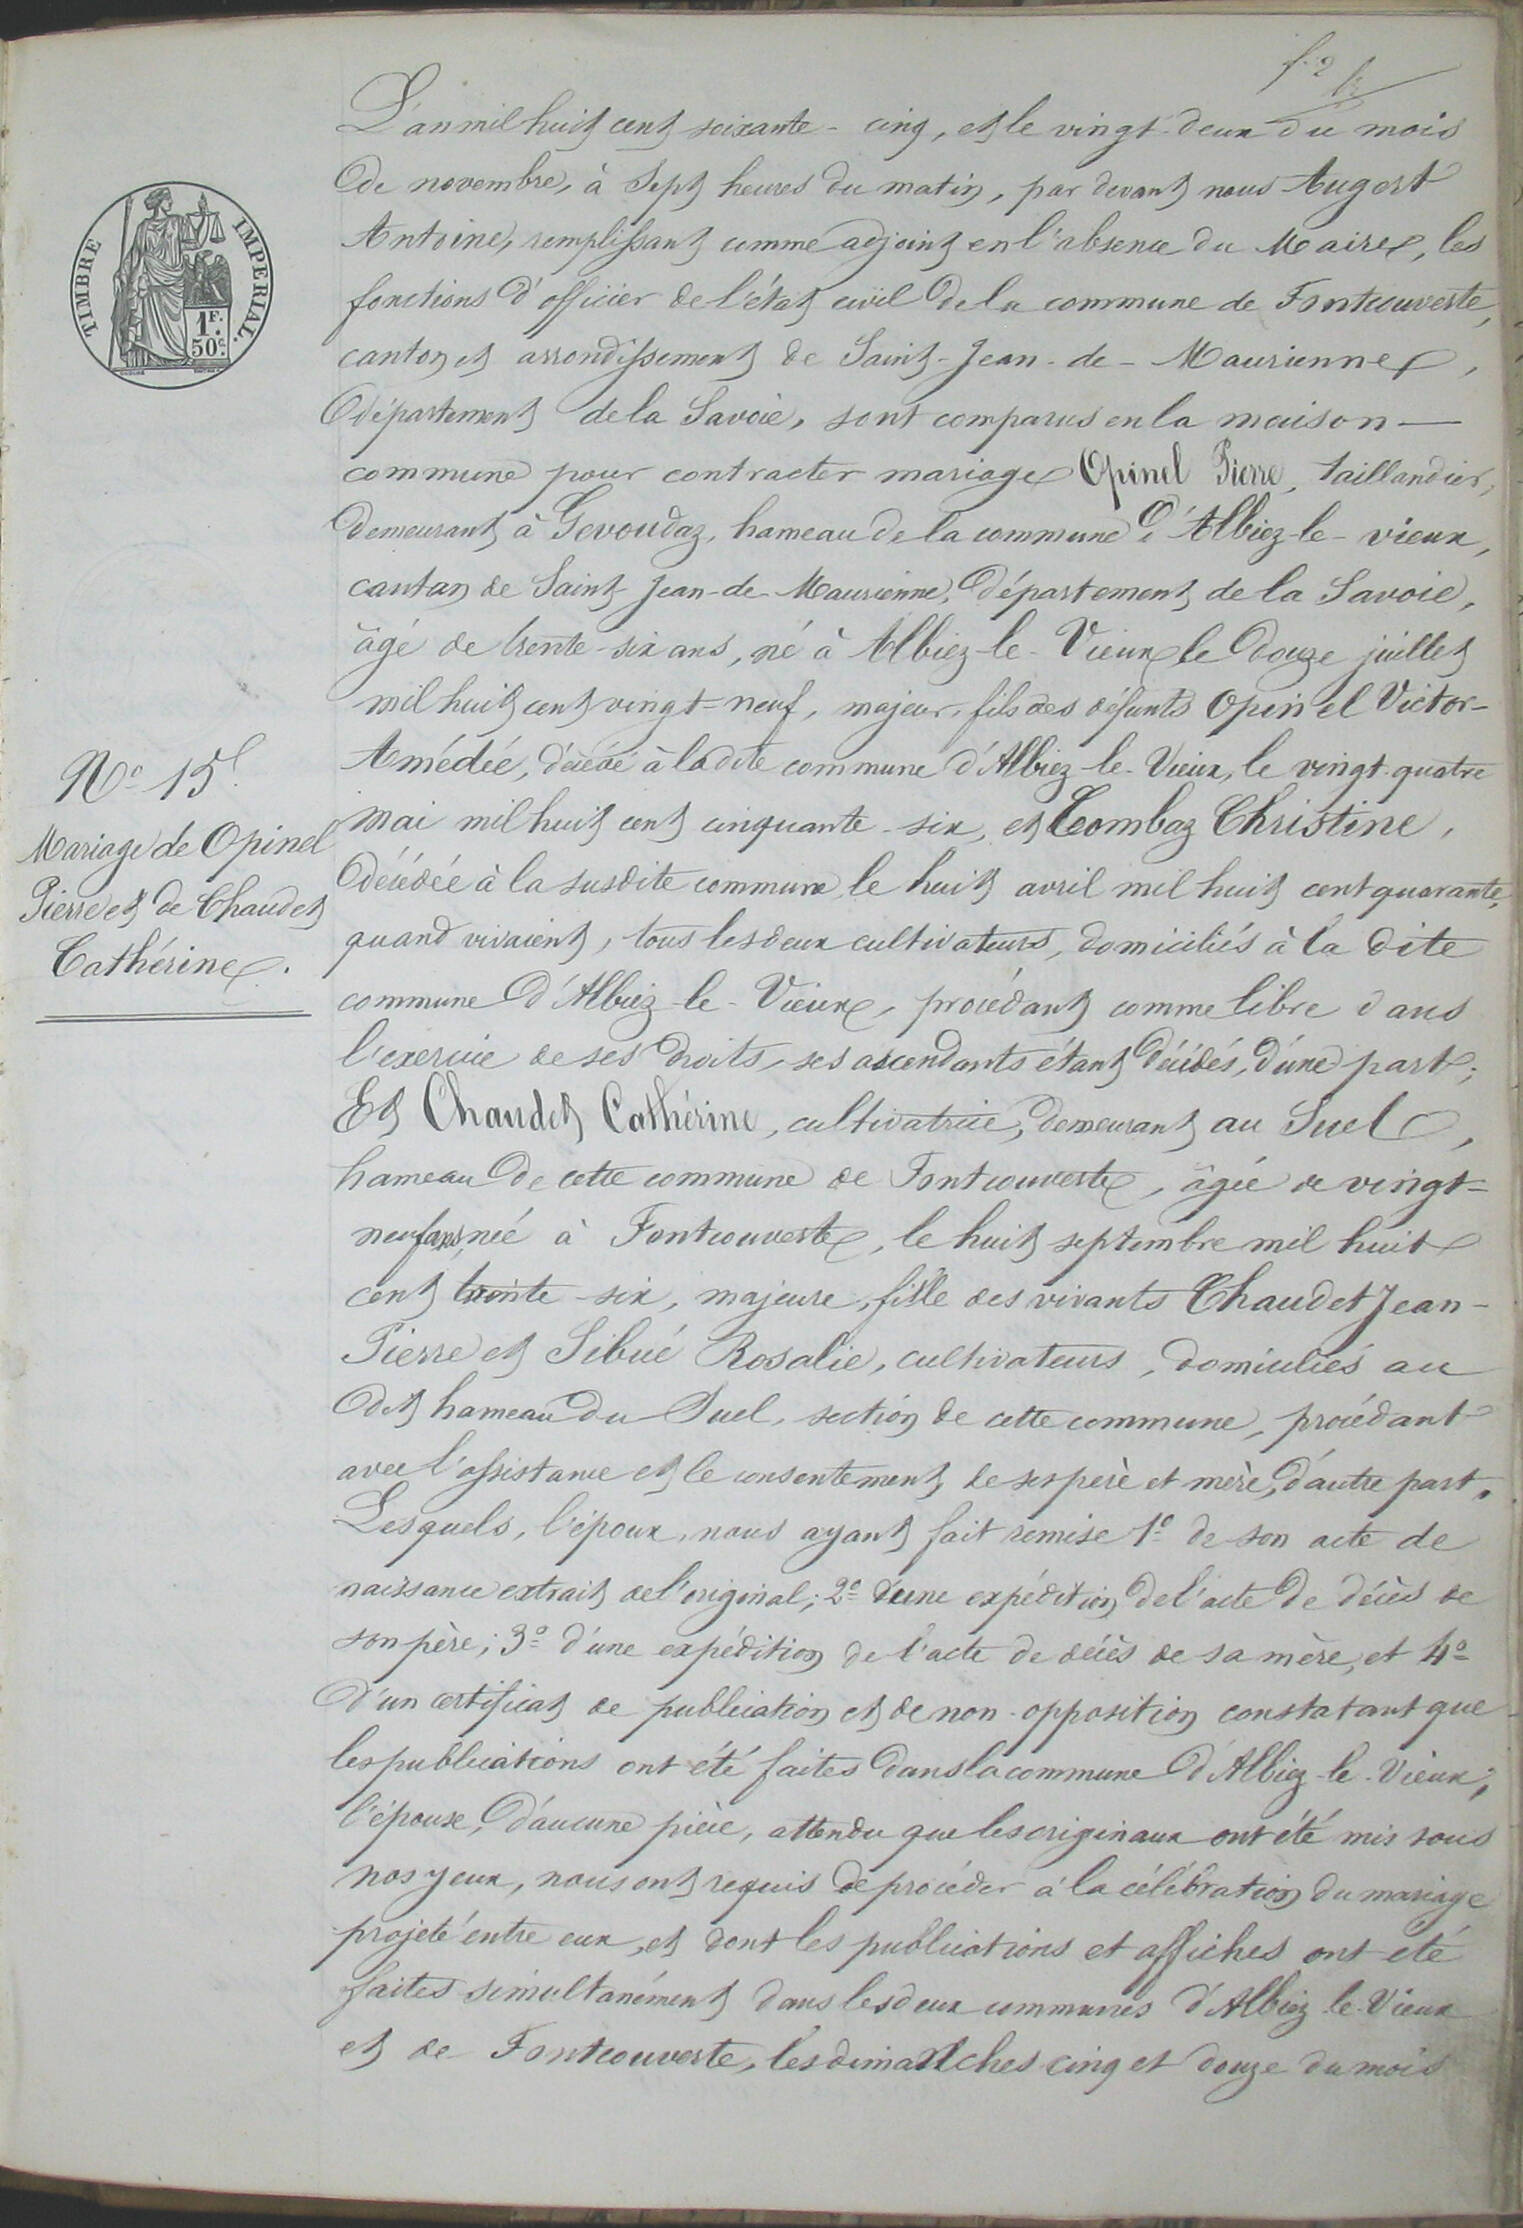 f. 2
L'an mil huit cent soixante-cinq, et le vingt-deux du mois
de novembre, à sept heures du matin, par devant nous Augert
Antoine, remplissant comme adjoint en l'absence du Maire, les
fonctions d'officier de l'état civil de la commune de Fontcouverte,
canton et arrondissement de Saint-Jean-de-Maurienne,
département de la Savoie, sont comparus en la maison —
commune pour contracter mariage Opinel Pierre, taillandier,
demeurant à Gevoudaz, hameau de la commune d'Albiez-le-vieux,
canton de Saint-Jean-de-Maurienne, département de la Savoie,
âgé de trente-six ans, né à Albiez-le-Vieux le douze juillet
mil huit cent vingt-neuf, majeur, fils des défunts Opinel Victor-
Amédée, décédé à la dite commune d'Albiez-le-Vieux, le vingt-quatre
mai mil huit cent cinquante-six, et Combaz Christine,
décédée à la susdite commune, le huit avril mil huit cent quarante,
quand vivaient, tous les deux cultivateurs, domiciliés à la dite
commune d'Albiez-le-Vieux, procédant comme libre dans
l'exercice de ses droits, ses ascendants étant décédés, d'une part;
Et Chaudet Cathérine, cultivatrice, demeurant au Suel,
hameau de cette commune de Fontcouverte, âgée de vingt-
neuf ans, née à Fontcouverte, le huit septembre mil huit
cent trente-six, majeure, fille des vivants Chaudet Jean-
Pierre et Sibué Rosalie, cultivateurs, domiciliés au
dit hameau du Suel, section de cette commune, procédant
avec l'assistance et le consentement de ses père et mère, d'autre part.
Lesquels, l'époux, nous ayant fait remise 1º de son acte de
naissance extrait de l'original; 2º d'une expédition de l'acte de décès de
son père; 3º d'une expédition de l'acte de décès de sa mère, et 4º
d'un certificat de publication et de non-opposition constatant que
les publications ont été faites dans la commune d'Albiez-le-Vieux;
l'épouse, d'aucune pièce, attendu que les originaux ont été mis sous
nos yeux, nous ont requis de procéder à la célébration du mariage
projeté entre eux, et dont les publications et affiches ont été
faites simultanément dans les deux communes d'Albiez-le-Vieux
et de Fontcouverte, les dimanches cinq et douze du mois
TIMBRE IMPERIAL.
1F.
50c.
Nº 15
Mariage de Opinel
Pierre et de Chaudet
Cathérine.